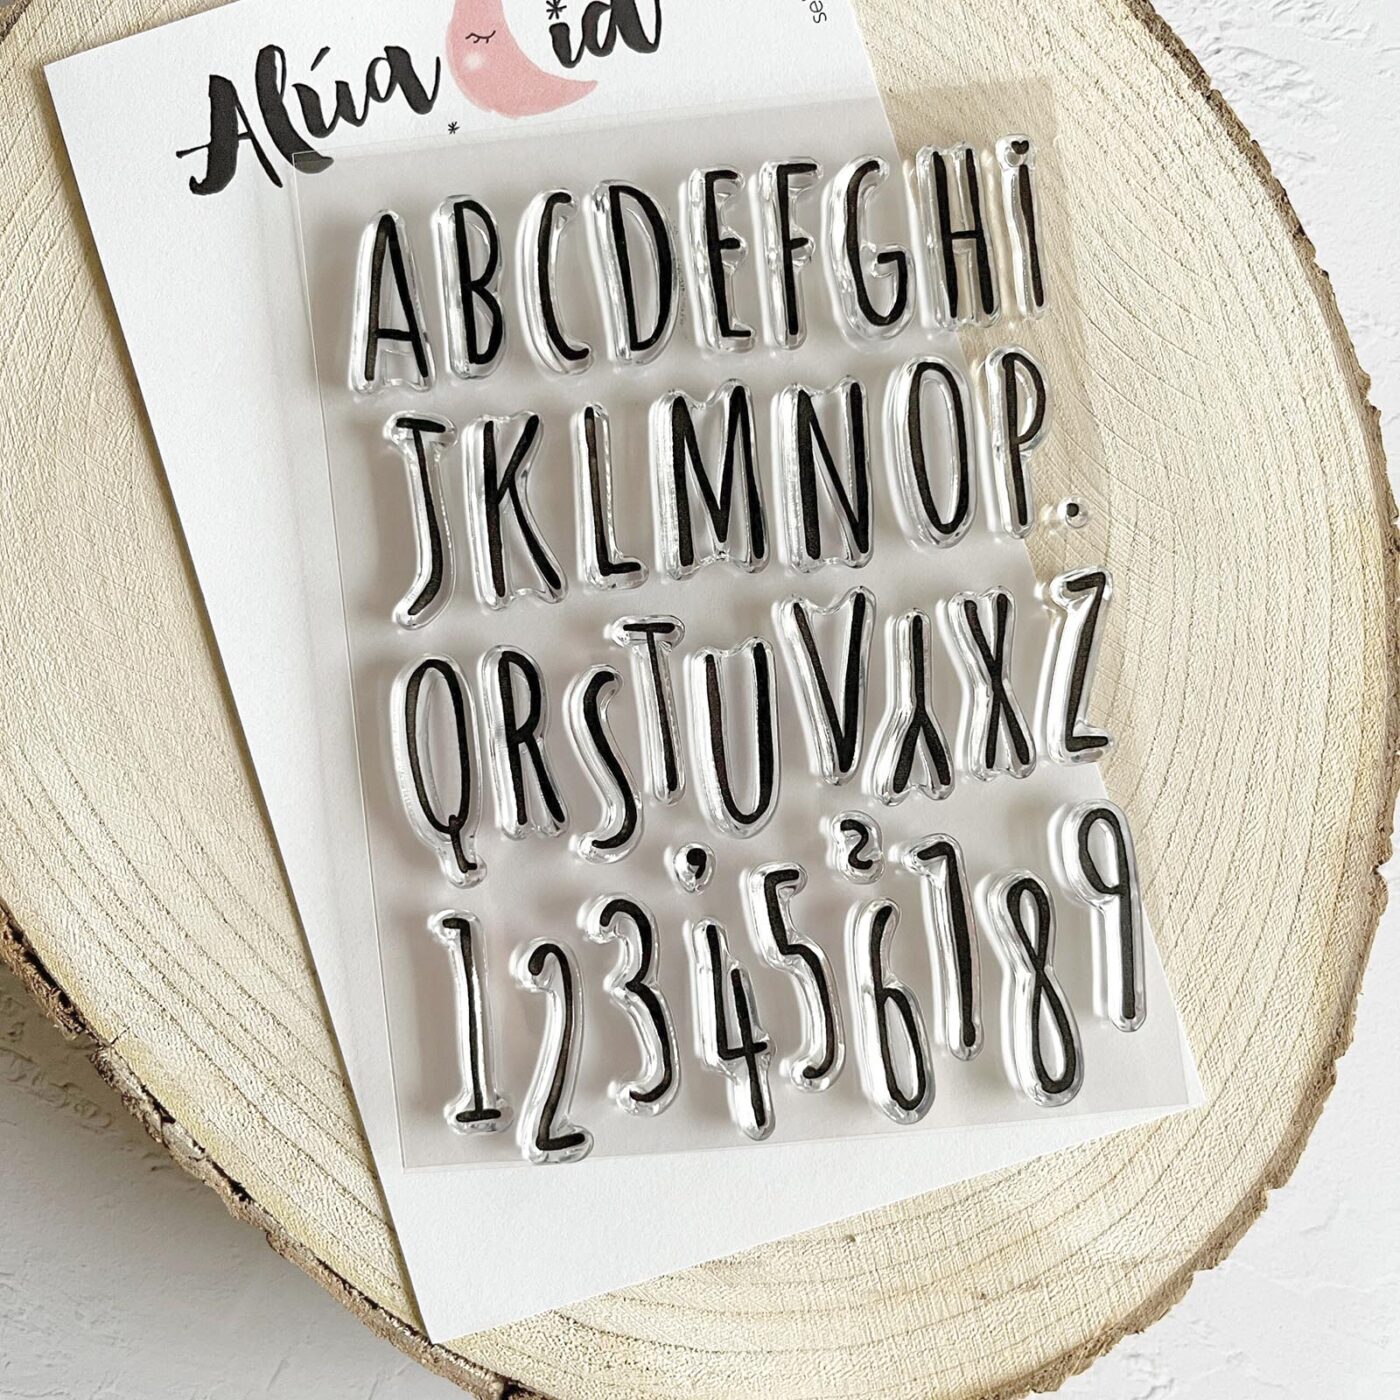 Alúa Cid
ABCDEFGHi
JKLMNOP.
QRSTUVYXZ
, ~
123456789